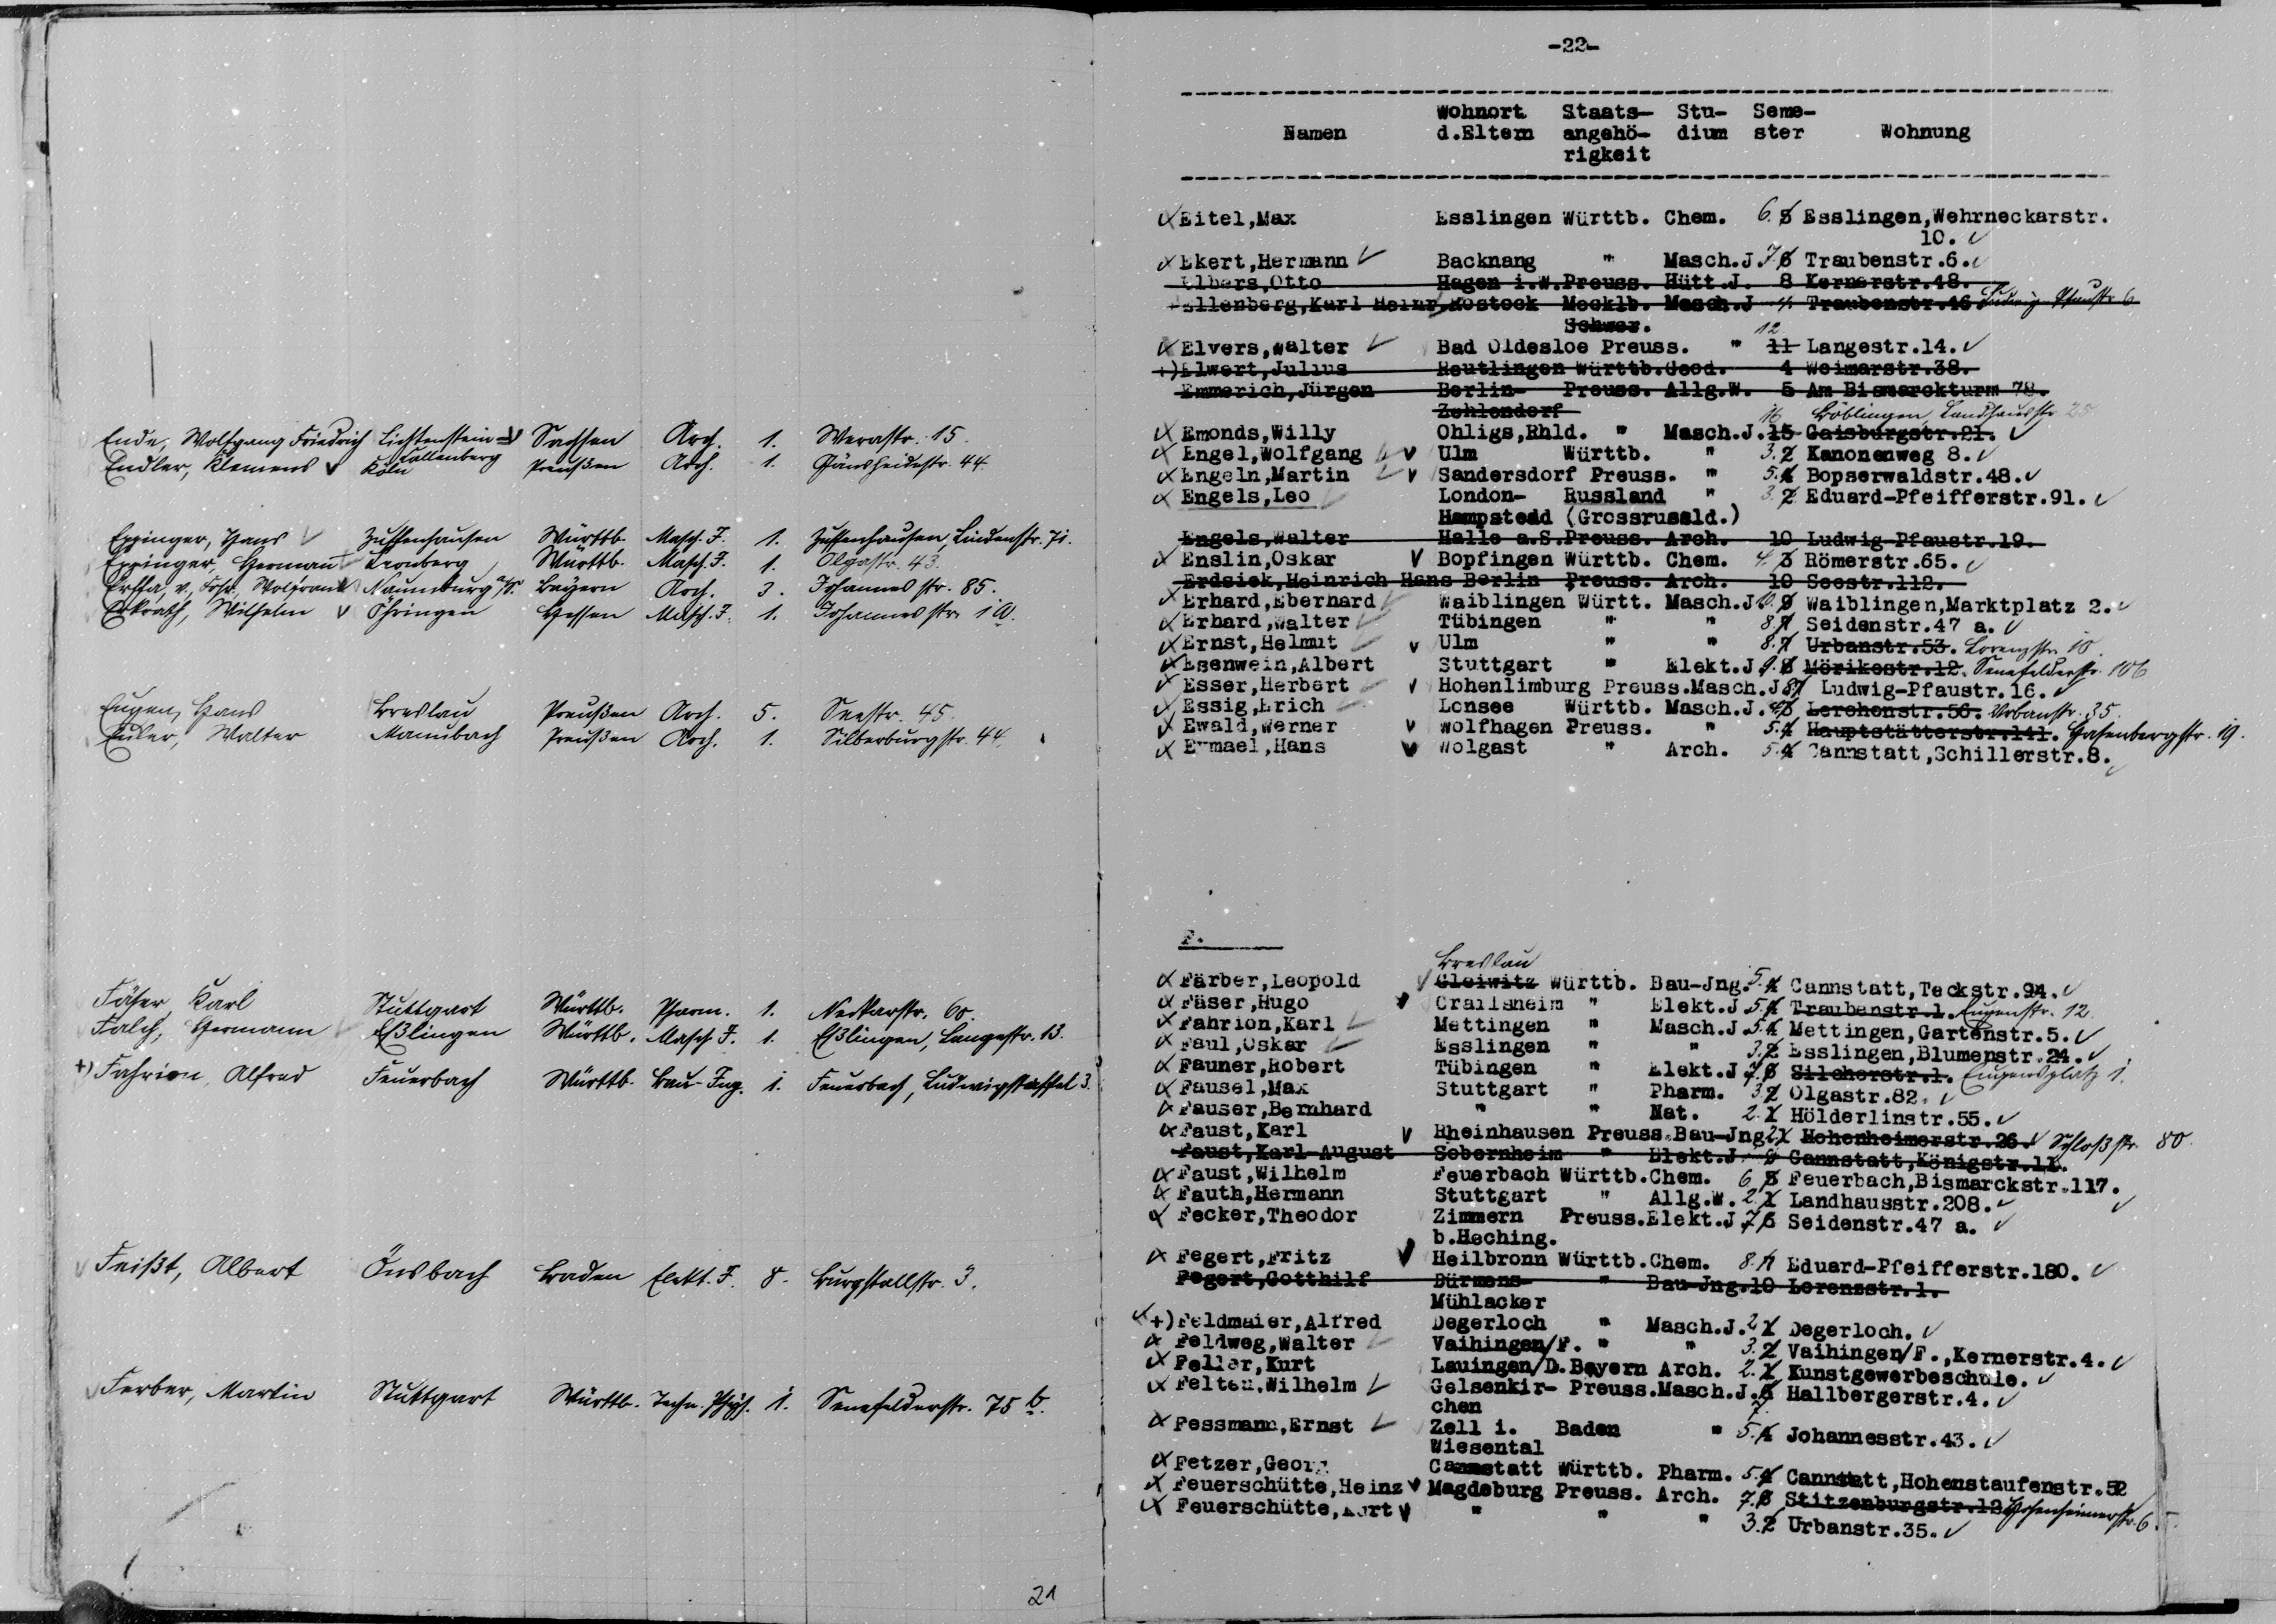 Ende, Wolfgang Friedrich Lichtenstein= Sachsen Arch. 1. Werastr. 15.
Callenberg
Endler, Klemens v Köln Preußen Arch. 1. Gänsheidestr. 44.
Eppinger, Hans Zuffenhausen Württb. Masch.J. 1. Zuffenhausen, Lindenstr. 71.
Eppinger, Herman Leonberg Württb. Masch.J. 1. Olgastr. 43.
Erffa, v., Frhr., Wolfram Naumburg a/S. Bayern Arch. 3. Johannesstr. 85.
Erkrath, Wilhelm v Öhringen Hessen Masch.J. 1. Johannesstr. 1 A.
Eugen, Hans Breslau Preußen Arch. 5. Seestr. 45.
Euler, Walter Mannbach Preußen Arch. 1. Silberburgstr. 44.
Fäser, Karl Stuttgart Württb. Pharm. 1. Neckarstr. 60.
Falch, Hermann Eßlingen Württb. Masch.J. 1. Eßlingen, Langestr. 13.
+) Fahrion, Alfred Feuerbach Württb. Bau-Ing. 1. Feuerbach, Ludwigstaffel 3.
Feißt, Albert Önsbach Baden Elekt.J. 8. Burgstallstr. 3.
Ferber, Martin Stuttgart Württb. Techn. Phys. 1. Senefelderstr. 75 b.
21
-22-
Wohnort Staats- Stu- Seme-
Namen d.Eltern angehö- dium ster Wohnung
rigkeit
Eitel,Max Esslingen Württb. Chem. 6. 5 Esslingen,Wehrneckarstr.
10.
Ekert,Hermann Backnang " Masch.J. 7 6 Traubenstr.6.
Elbers,Otto Hagen i.W.Preuss. Hütt.J. 8 Kernerstr.48.
Ellenberg,Karl Heinz,Rostock Mecklb. Masch.J 4 Traubenstr.46. Ludwig Pfaustr 6
Schwer.
12
Elvers,Walter Bad Oldesloe Preuss. " 11 Langestr.14.
+)Elwert,Julius Reutlingen Württb.Geod. 4 Weimarstr.38.
Emmerich,Jürgen Berlin- Preuss. Allg.W. 5 Am Bismarckturm 78.
Zehlendorf
16 Böblingen, Landhausstr. 25
Emonds,Willy Ohligs,Rhld. " Masch.J.15 Gaisburgstr.21.
Engel,Wolfgang v Ulm Württb. " 3. 2 Kanonenweg 8.
Engeln,Martin v Sandersdorf Preuss. " 5. 4 Bopserwaldstr.48.
Engels,Leo London- Russland " 3. 2 Eduard-Pfeifferstr.91.
Hampstead (Grossrussld.)
Engels,Walter Halle a.S.Preuss. Arch. 10 Ludwig-Pfaustr.19.
Enslin,Oskar v Bopfingen Württb. Chem. 4. 3 Römerstr.65.
Erdsiek,Heinrich Hans Berlin Preuss. Arch. 10 Seestr.112.
Erhard,Eberhard Waiblingen Württ. Masch.J 10. 9 Waiblingen,Marktplatz 2.
Erhard,Walter Tübingen " " 8. 7 Seidenstr.47 a.
Ernst,Helmut v Ulm " " 8. 7 Urbanstr.53. Lorenzstr. 10.
Esenwein,Albert Stuttgart " Elekt.J 9. 8 Mörikestr.12. Senefelderstr. 106
Esser,Herbert v Hohenlimburg Preuss.Masch.J 8 7 Ludwig-Pfaustr.16.
Essig,Erich Lonsee Württb. Masch.J. Lerchenstr.56. Urbanstr. 35.
Ewald,Werner v Wolfhagen Preuss. " 5. 4 Hauptstätterstr.141. Hasenbergstr. 19.
Eymael,Hans v Wolgast " Arch. 5. 4 Cannstatt,Schillerstr.8.
F.
Breslau
Färber,Leopold v Gleiwitz Württb. Bau-Jng. 5. 4 Cannstatt,Teckstr.94.
Fäser,Hugo v Crailsheim " Elekt.J 5. 4 Traubenstr.1. Eugenstr. 12.
Fahrion,Karl Mettingen " Masch.J 5. 4 Mettingen,Gartenstr.5.
Faul,Oskar Esslingen " " 3. 2 Esslingen,Blumenstr.24.
Fauner,Robert Tübingen " Elekt.J 7. 6 Silcherstr.1. Eugensplatz 1.
Fausel,Max Stuttgart " Pharm. 3. 2 Olgastr.82.
Fauser,Bernhard " " Nat. 2. 1 Hölderlinstr.55.
Faust,Karl v Rheinhausen Preuss.Bau-Jng 2. 1 Hohenheimerstr.26. Schloßstr. 80.
Faust,Karl-August Sobernheim " Elekt.J Cannstatt,Königstr.11.
Faust,Wilhelm Feuerbach Württb.Chem. 6 5 Feuerbach,Bismarckstr.117.
Fauth,Hermann Stuttgart " Allg.W. 2. 1 Landhausstr.208.
Fecker,Theodor Zimmern Preuss.Elekt.J 7. 6 Seidenstr.47 a.
b.Heching.
Fegert,Fritz v Heilbronn Württb.Chem. 8. 7 Eduard-Pfeifferstr.180.
Fegert,Gotthilf Dürmenz- " Bau-Jng.10 Lorenzstr.1.
Mühlacker
+)Feldmaier,Alfred Degerloch " Masch.J. 2. 1 Degerloch.
Feldweg,Walter Vaihingen/F. " " 3. 2 Vaihingen/F.,Kernerstr.4.
Feller,Kurt Lauingen/D.Bayern Arch. 2. 1 Kunstgewerbeschule.
Felten,Wilhelm Gelsenkir- Preuss.Masch.J. 6 Hallbergerstr.4.
chen 7.
Fessmann,Ernst Zell i. Baden " 5. 4 Johannesstr.43.
Wiesental
Fetzer,Georg Cannstatt Württb. Pharm. 5. 4 Cannstatt,Hohenstaufenstr.52
Feuerschütte,Heinz v Magdeburg Preuss. Arch. 7. 6 Stitzenburgstr.12 Hohenheimerstr. 6
Feuerschütte,Kurt v " " " 3. 2 Urbanstr.35.